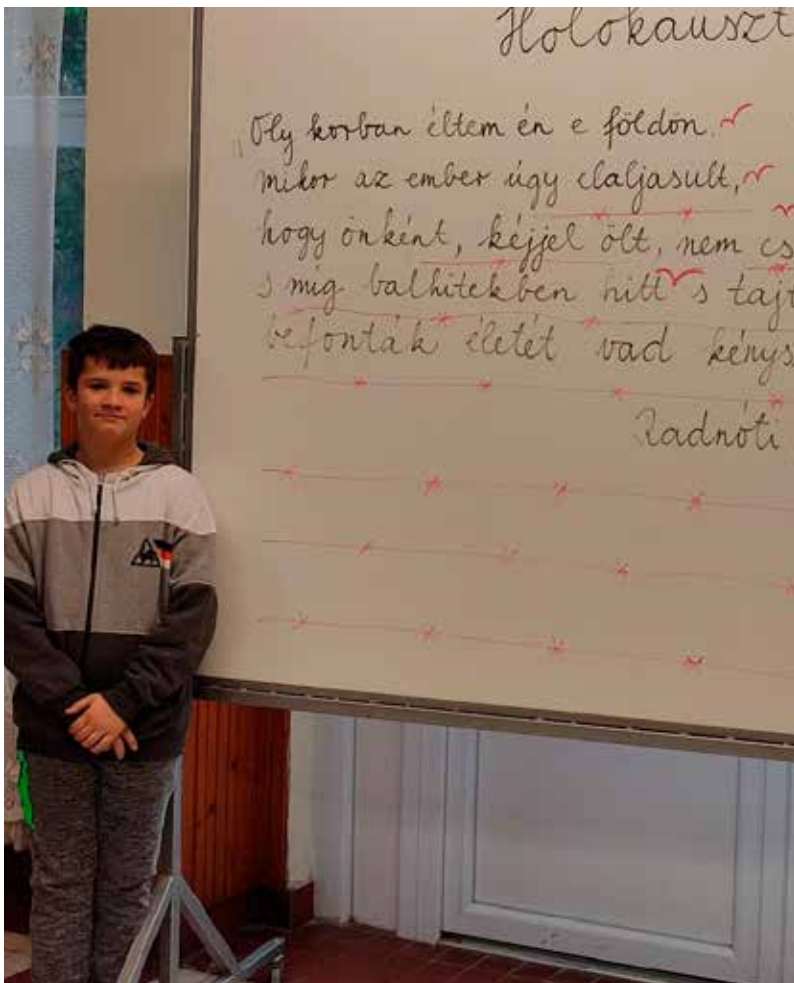 Holokauszt
„Oly korban éltem én e földön
mikor az ember úgy elaljasult,
hogy önként, kéjjel ölt, nem cs
s míg balhitekben hitt s tajt
befonták életét vad kénys
Radnóti